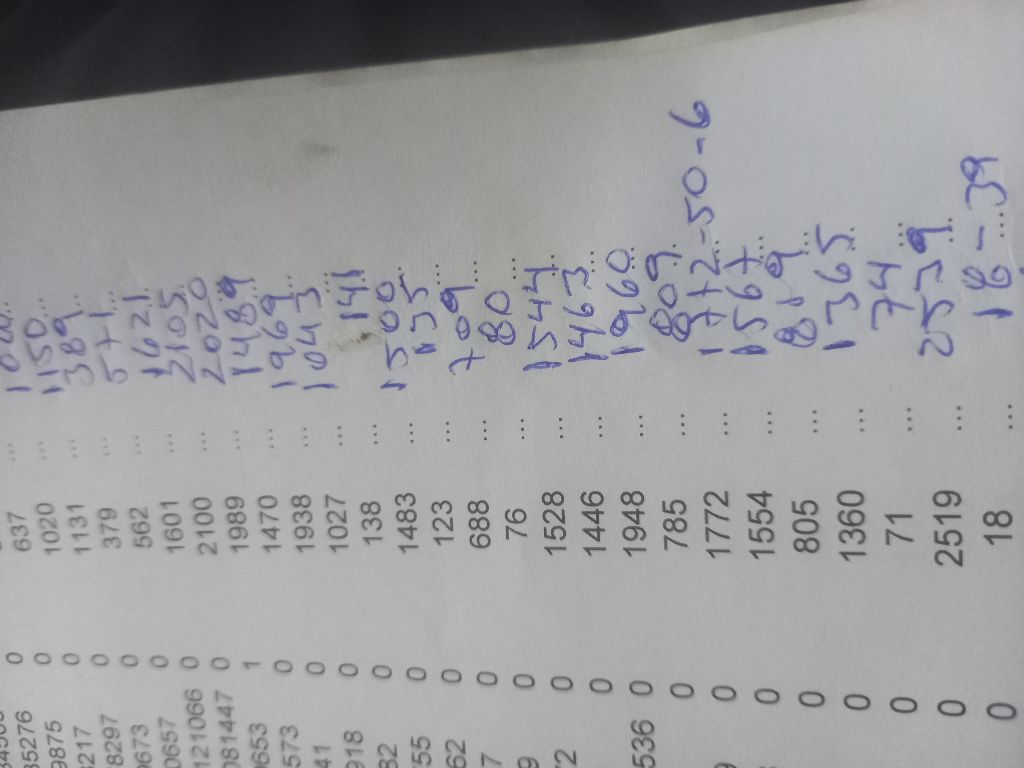 35276 0
9875 0 637 ...
3217 0 1020 ...
8297 0 1131 ... 1150
9673 0 379 ... 389
0657 0 562 ... 571
121066 0 1601 ... 1621
081447 0 2100 ... 2105
9653 1 1989 ... 2020
573 0 1470 ... 1489
41 0 1938 ... 1969
918 0 1027 ... 1043
82 0 138 ... 141
755 0 1483 ... 1500
62 0 123 ... 135
7 0 688 ... 709
9 0 76 ... 80
72 0 1528 ... 1544
0 1446 ... 1463
536 0 1948 ... 1960
0 785 ... 809
0 1772 ... 1772-50-6
0 1554 ... 1567
0 805 ... 819
0 1360 ... 1365
0 71 ... 74
0 2519 ... 2539
0 18 ... 18-39